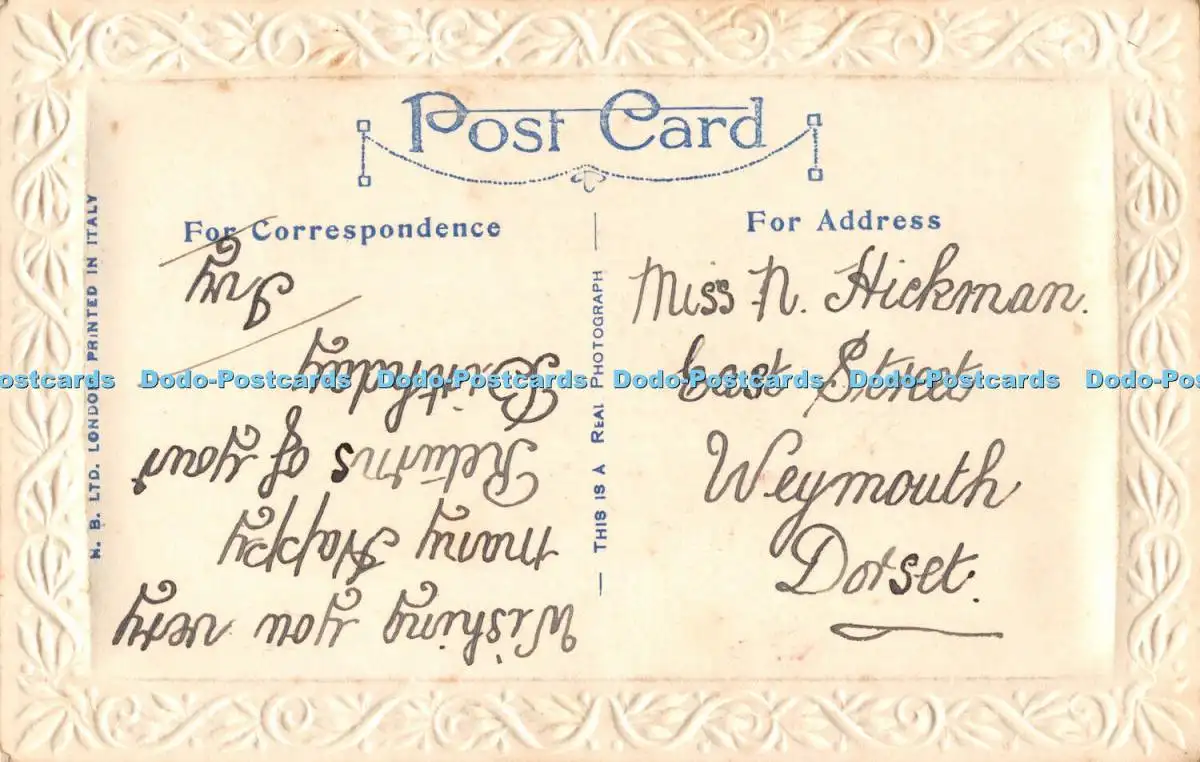 Post Card
For Correspondence
For Address
Wishing you very
many Happy
Returns of your
Birthday
Ivy
Miss N. Hickman.
East Street
Weymouth
Dorset.
N. B. LTD. LONDON PRINTED IN ITALY
THIS IS A REAL PHOTOGRAPH
Dodo-Postcards Dodo-Postcards Dodo-Postcards Dodo-Postcards Dodo-Postcards Dodo-Postcards